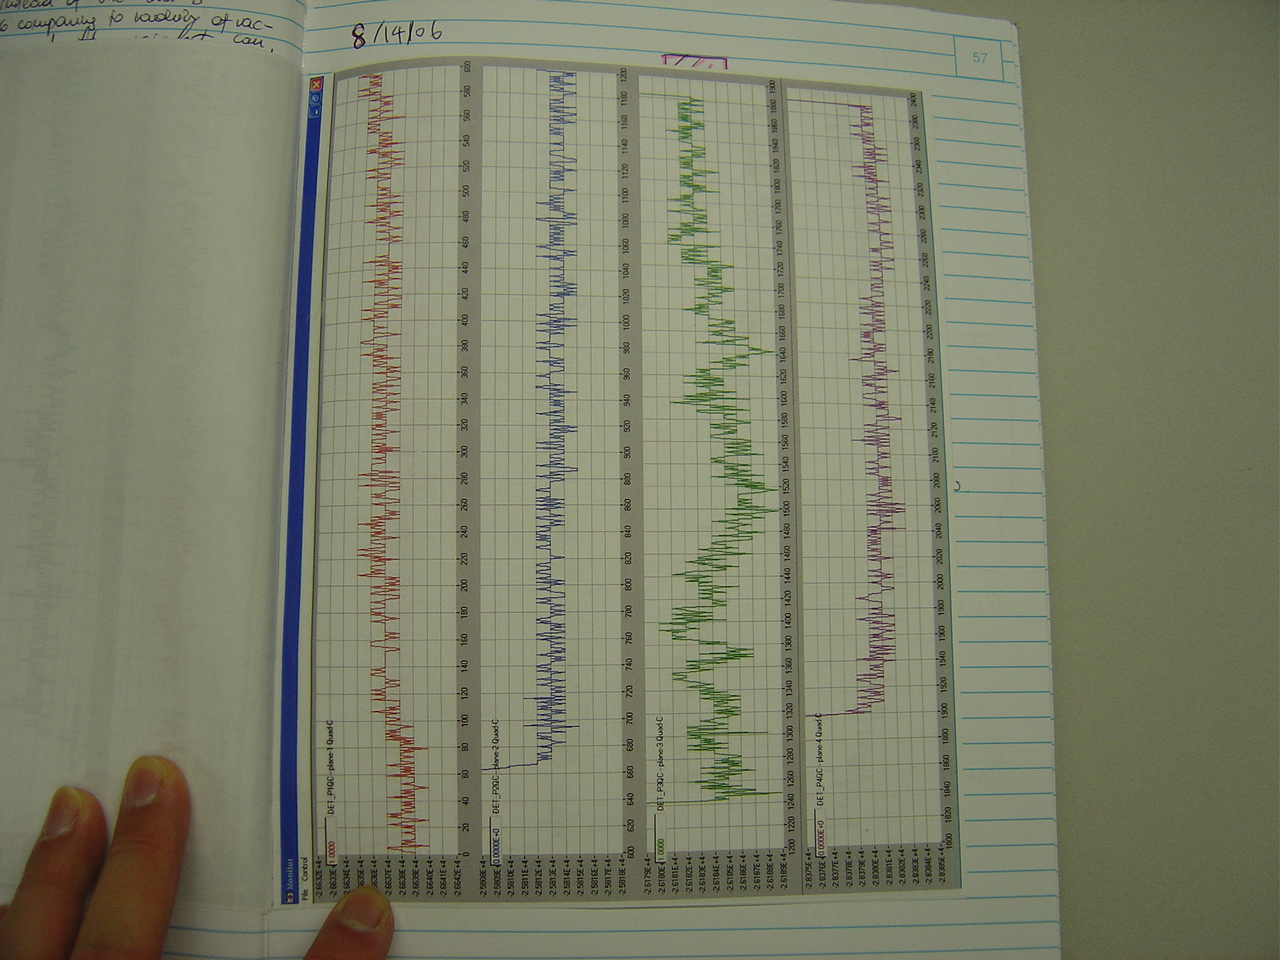 company to
8/14/06
57
Monitor
File Control
DET_P1QC - plane-1 Quad C
1.0000
-2.6632E+4
-2.6633E+4
-2.6634E+4
-2.6635E+4
-2.6636E+4
-2.6637E+4
-2.6638E+4
-2.6639E+4
-2.6640E+4
-2.6641E+4
-2.6642E+4
0 20 40 60 80 100 120 140 160 180 200 220 240 260 280 300 320 340 360 380 400 420 440 460 480 500 520 540 560 580 600
DET_P2QC - plane-2 Quad C
0.0000E+0
-2.5808E+4
-2.5809E+4
-2.5810E+4
-2.5811E+4
-2.5812E+4
-2.5813E+4
-2.5814E+4
-2.5815E+4
-2.5816E+4
-2.5817E+4
-2.5818E+4
600 620 640 660 680 700 720 740 760 780 800 820 840 860 880 900 920 940 960 980 1000 1020 1040 1060 1080 1100 1120 1140 1160 1180 1200
DET_P3QC - plane-3 Quad C
1.0000
-2.6179E+4
-2.6180E+4
-2.6181E+4
-2.6182E+4
-2.6183E+4
-2.6184E+4
-2.6185E+4
-2.6186E+4
-2.6187E+4
-2.6188E+4
-2.6189E+4
1200 1220 1240 1260 1280 1300 1320 1340 1360 1380 1400 1420 1440 1460 1480 1500 1520 1540 1560 1580 1600 1620 1640 1660 1680 1700 1720 1740 1760 1780 1800 1820 1840 1860 1880 1900
DET_P4QC - plane-4 Quad C
0.0000E+0
-2.8375E+4
-2.8376E+4
-2.8377E+4
-2.8378E+4
-2.8379E+4
-2.8380E+4
-2.8381E+4
-2.8382E+4
-2.8383E+4
-2.8384E+4
-2.8385E+4
1800 1820 1840 1860 1880 1900 1920 1940 1960 1980 2000 2020 2040 2060 2080 2100 2120 2140 2160 2180 2200 2220 2240 2260 2280 2300 2320 2340 2360 2380 2400